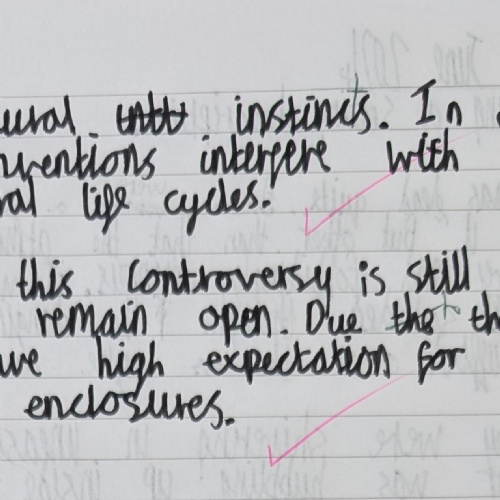 instincts. In
interfere with
life cycles.
this controversy is still
remain open. Due the
high expectation for
enclosures.